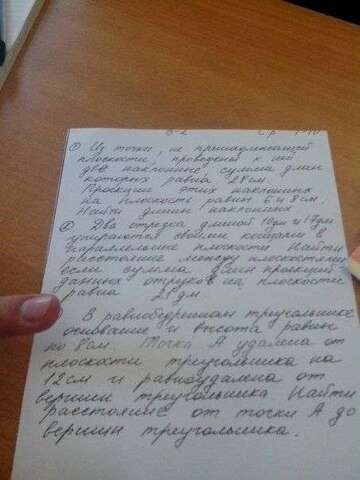 В-2 Ср
① Из точки, не принадлежащей
плоскости, проведены к ней
две наклонные, сумма длин
которых равна 28 см.
Проекции этих наклонных
на плоскость равны 6 и 8 см.
Найти длины наклонных
② Два отрезка длиной 10 дм и 17 дм
упираются своими концами в
параллельные плоскости Найти
расстояние между плоскостями
если сумма длин проекций
данных отрезков на плоскости
равна 21 дм
В равнобедренном треугольнике
основание и высота равны
по 8 см. Точка А удалена от
плоскости треугольника на
12 см и равноудалена от
вершин треугольника Найти
расстояние от точки А до
вершин треугольника.